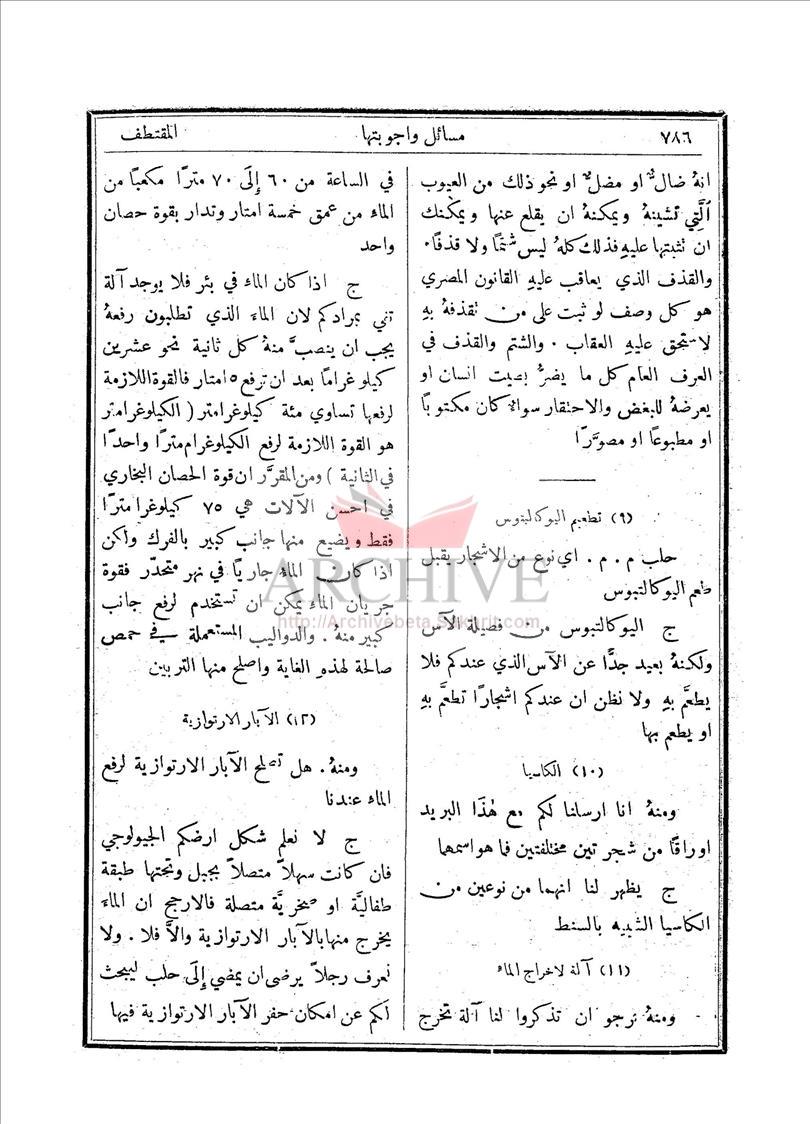 ٧٨٦ مسائل واجوبتها المقتطف
انهُ ضالٌّ او مضلٌّ او نحو ذلك من العيوب
الَّتِي تشينهُ ويمكنهُ ان يقلع عنها ويمكنك
ان تثبتها عليهِ فذلك كلهُ ليس شتمًا ولا قذفًا ٠
والقذف الذي يعاقب عليهِ القانون المصري
هو كل وصف لو ثبت على من تقذفهُ بهِ
لاستحق عليهِ العقاب ٠ والشتم والقذف في
العرف العام كل ما يضرُّ بصيت انسان او
يعرضهُ للبغض والاحتقار سوالا كان مكتوبًا
او مطبوعًا او مصوَّرًا
(٩) تطعيم اليوكالبتوس
حلب م ٠ م ٠ اي نوع من الاشجار يقبل
طعم اليوكالبتوس
ج اليوكالبتوس من فصيلة الآس
ولكنهُ بعيد جدًّا عن الآس الذي عندكم فلا
يطعَّم بهِ ولا نظن ان عندكم اشجارًا تطعَّم بهِ
او يطعم بها
(١٠) الكاسيا
ومنهُ انا ارسلنا لكم مع هٰذَا البريد
اوراقًا من شجرتين مختلفتين فما هو اسمهما
ج يظهر لنا انهما من نوعين من
الكاسيا الشبيه بالسنط
(١١) آلة لاخراج الماء
ومنهُ نرجو ان تذكروا لنا آلة تخرج
في الساعة من ٦٠ إِلَى ٧٠ مترًا مكعبًا من
الماء من عمق خمسة امتار وتدار بقوة حصان
واحد
ج اذا كان الماء في بئر فلا يوجد آلة
تفي بمرادكم لان الماء الذي تطلبون رفعهُ
يجب ان ينصبَّ منهُ كل ثانية نحو عشرين
كيلو غرامًا بعد ان ترفع ٥ امتار فالقوة اللازمة
لرفعها تساوي مئة كيلوغرامتر ( الكيلوغرامتر
هو القوة اللازمة لرفع الكيلوغرام مترًا واحدًا
في الثانية ) ومن المقرَّر ان قوة الحصان البخاري
في احسن الآلات هي ٧٥ كيلوغرامترًا
فقط ويضيع منها جانب كبير بالفرك ولكن
اذا كان الماء جاريًا في نهر متحدّر فقوة
جريان الماء يمكن ان تستخدم لرفع جانب
كبير منهُ ٠ والدواليب المستعملة في حمص
صالحة لهذه الغاية واصلح منها التربين
(١٢) الآبار الارتوازية
ومنهُ ٠ هل تصلح الآبار الارتوازية لرفع
الماء عندنا
ج لا نعلم شكل ارضكم الجيولوجي
فان كانت سهلاً متصلاً بجبل وتحتها طبقة
طفاليَّة او صخريَّة متصلة فالارجح ان الماء
يخرج منها بالآبار الارتوازية والاَّ فلا ٠ ولا
نعرف رجلاً يرضى ان يمضي إِلَى حلب ليبحث
لكم عن امكان حفر الآبار الارتوازية فيها
ARCHIVE
http://Archivebeta.Sakhrit.com